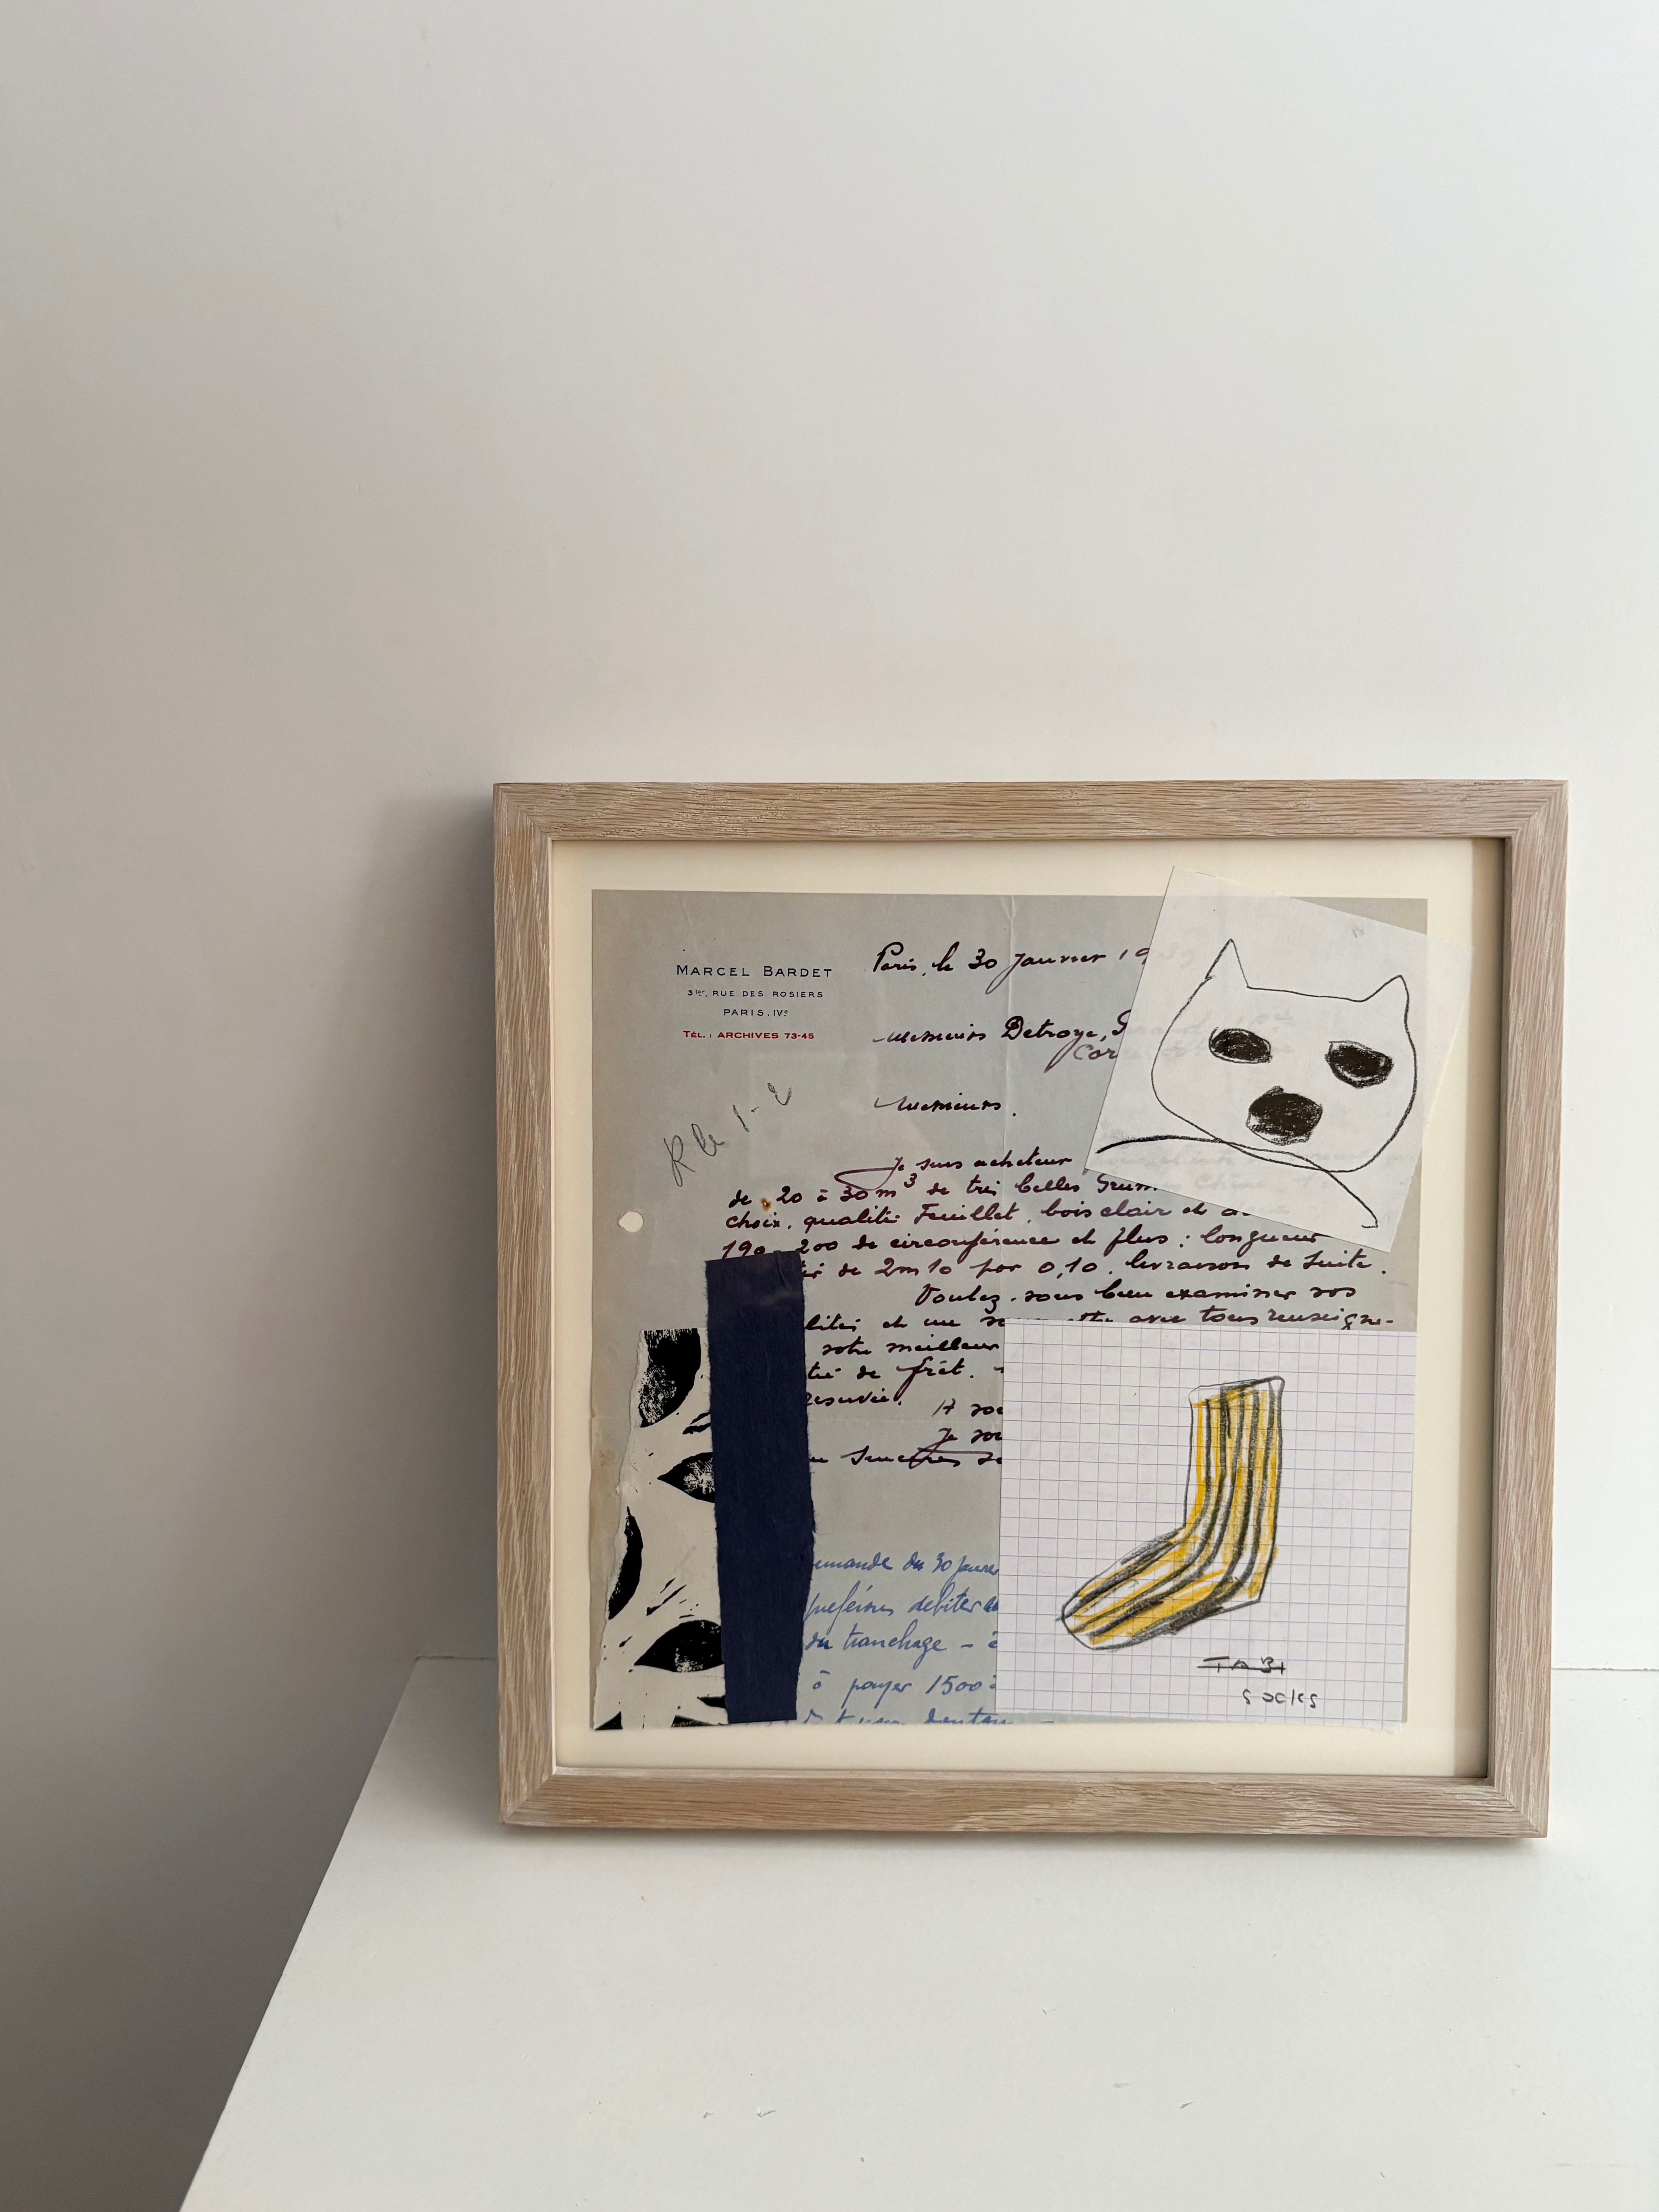 MARCEL BARDET
3TER, RUE DES ROSIERS
PARIS. IVe
TÉL. : ARCHIVES 73-45
Paris, le 30 Janvier 19
Messieurs Detroye,
Cor
Messieurs.
Je suis acheteur
de 20 à 30 m3 de très belles Grum
choix, qualité Feuillet, bois clair et
190 200 de circonférence et plus : longueur
de 2m10 par 0,10. livraison de suite.
Voulez-vous bien examiner vos
lités et me avec tous renseigne-
votre meilleur
tié de frêt.
reservée.
Je
demande du 30 janvier
préférons debiter
du tranchage - à
à payer 1500
TABI
socks